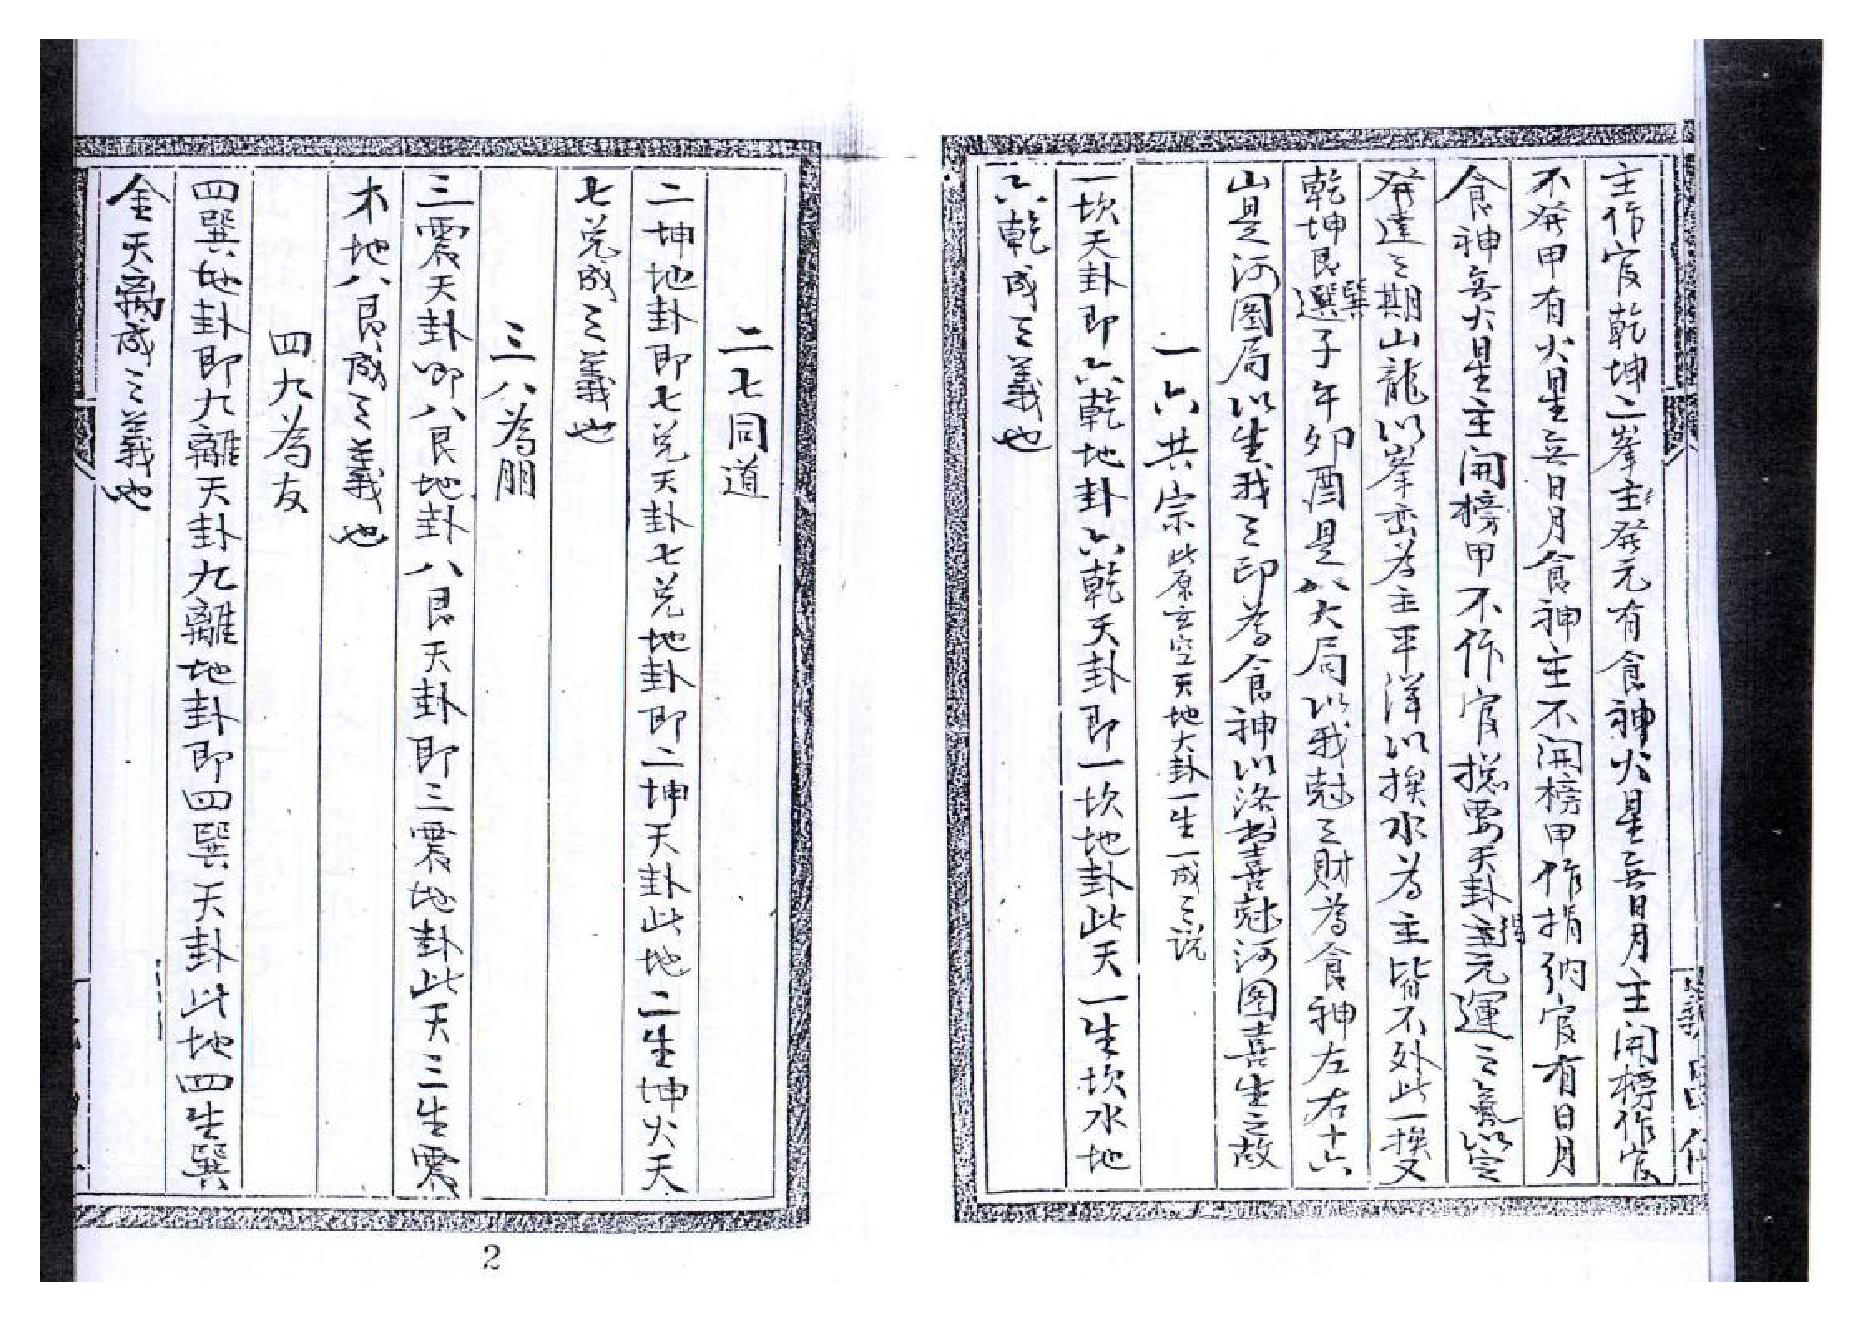 主作官乾坤二峯主發元有食神火星無日月主開榜作官
不發甲有火星無日月食神主不開榜甲作捐納官有日月
食神無火星主開榜甲不作官摠要天卦主得元運之氣以定
發達之期山龍以峯巒為主平洋以挨水為主皆不外此一挨又
乾坤艮巽選子午卯酉是八大局以我尅之財為食神左右十六
山是河圖局以生我之印為食神以洛書喜尅河圖喜生之故
一六共宗此原玄空天地大卦一生一成之說
一坎天卦即六乾地卦六乾天卦即一坎地卦此天一生坎水地
六乾成之義也
二七同道
二坤地卦即七兌天卦七兌地卦即二坤天卦此地二生坤火天
七兌成之義也
三八為朋
三震天卦即八艮地卦八艮天卦即三震地卦此天三生震
木地八艮成之義也
四九為友
四巽地卦即九離天卦九離地卦即四巽天卦此地四生巽
金天離成之義也
2